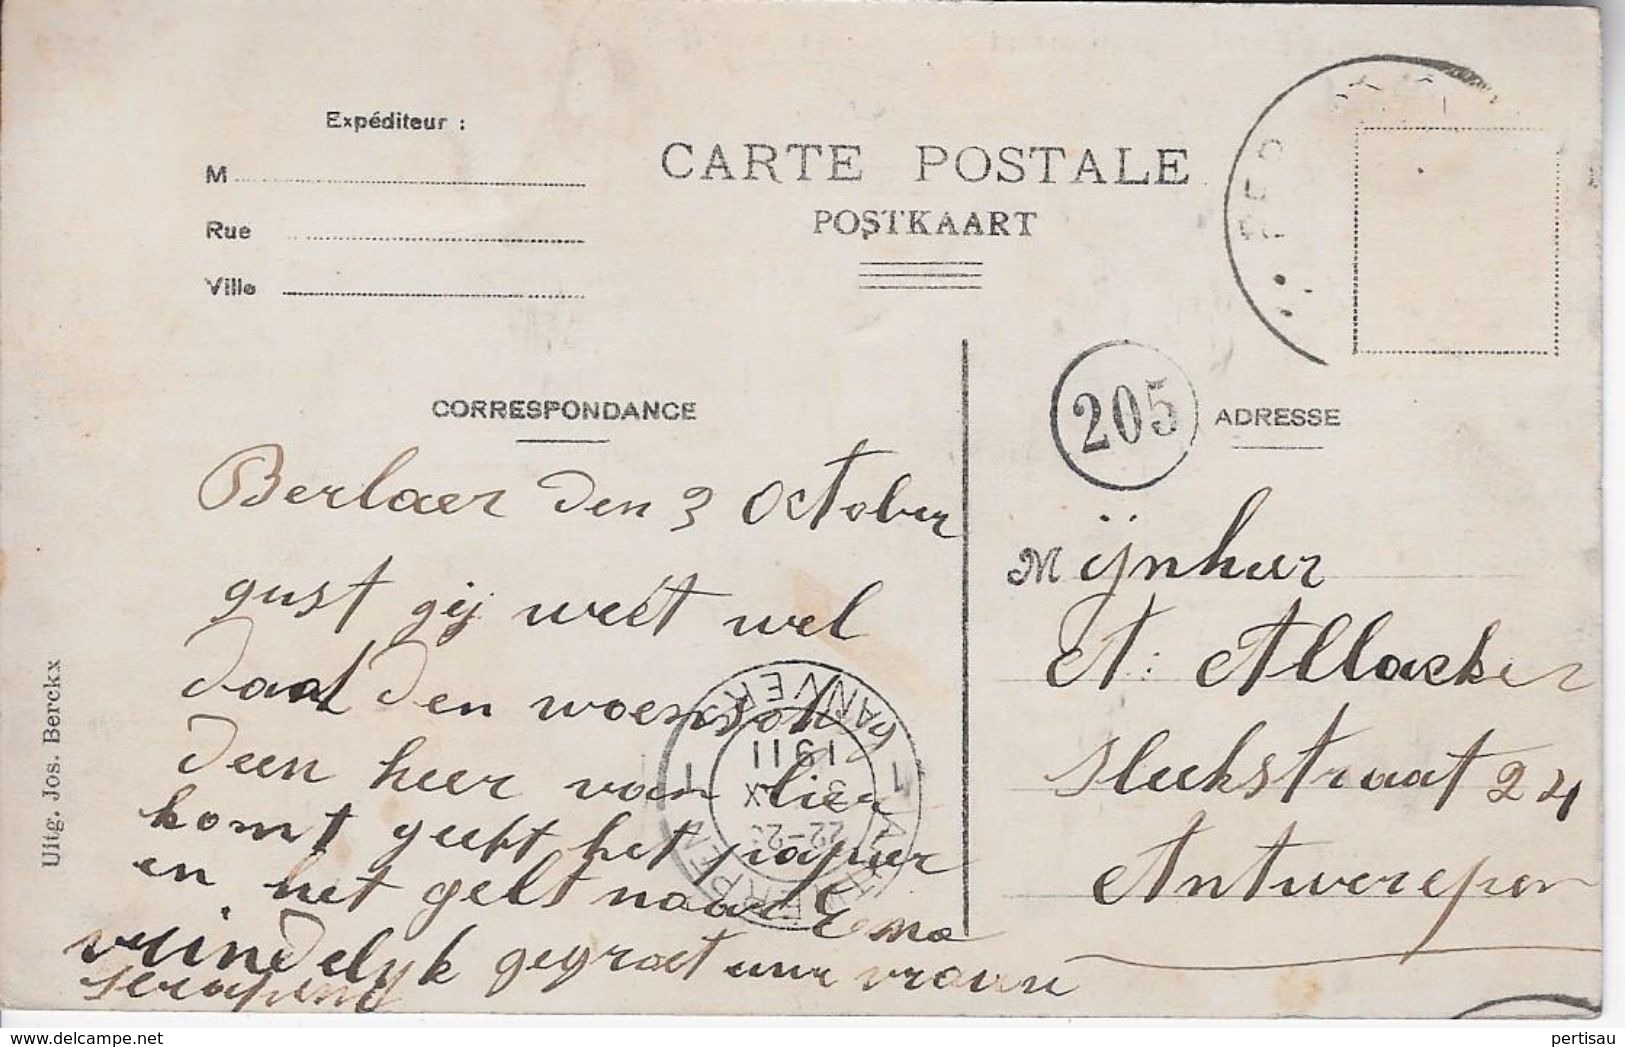 Expéditeur :
M
Rue
Ville
CARTE POSTALE
POSTKAART
CORRESPONDANCE
205
ADRESSE
Berlaer den 3 October
gust gij weet wel
daat den woensdag
deen heer van lier
komt geeft het papier
en het gelt naar Ema
vrindelyk gegroet uw vrouw
Mijnheer
A. Allacker
Sleekstraat 24
Antwerepen
1 ANTWERPEN 1 ANVERS
22-2
3 X
1911
Uitg. Jos. Berckx
pertisau